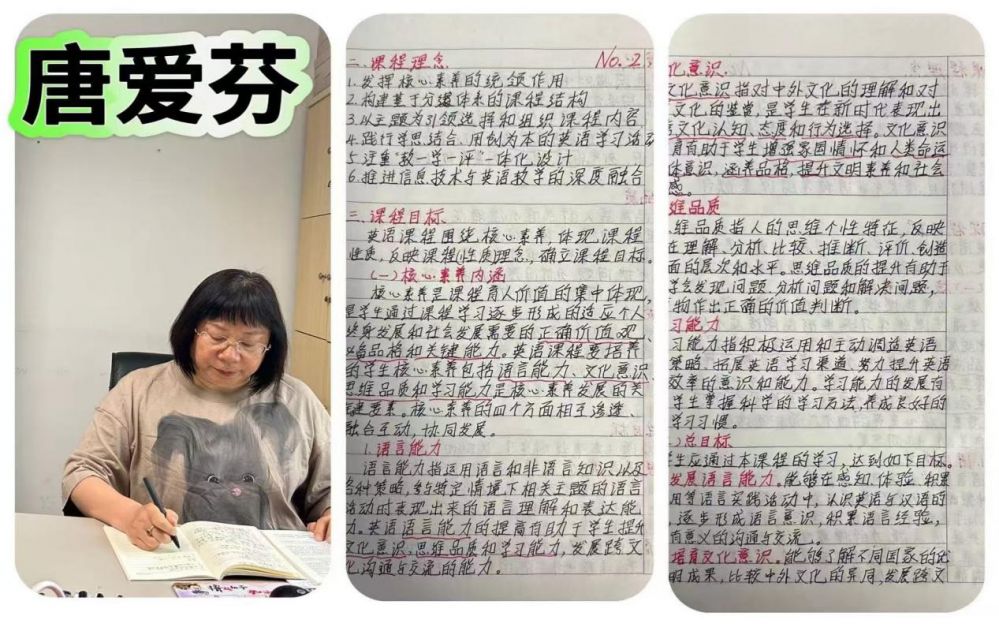 唐爱芬
二、课程理念 No.2
1.发挥核心素养的统领作用
2.构建基于分级体系的课程结构
3.以主题为引领选择和组织课程内容
4.践行学思结合、用创为本的英语学习活
5.注重“教—学—评”一体化设计
6.推进信息技术与英语教学的深度融合
三、课程目标
英语课程围绕核心素养,体现课程
性质,反映课程(性质)理念,确立课程目标。
(一)核心素养内涵
核心素养是课程育人价值的集中体现,
是学生通过课程学习逐步形成的适应个人
终身发展和社会发展需要的正确价值观、
必备品格和关键能力。英语课程要培养
的学生核心素养包括语言能力、文化意识
思维品质和学习能力是核心素养发展的关
键要素。核心素养的四个方面相互渗透、
融合互动,协同发展。
1.语言能力
语言能力指运用语言和非语言知识以及
各种策略,参与特定情境下相关主题的语言
活动时表现出来的语言理解和表达能
力。英语语言能力的提高有助于学生提升
文化意识、思维品质和学习能力,发展跨文
化沟通与交流的能力。
化意识
文化意识指对中外文化的理解和对
文化的鉴赏,是学生在新时代表现出
文化认知、态度和行为选择。文化意识
育有助于学生增强家国情怀和人类命运
体意识,涵养品格,提升文明素养和社会
感。
维品质
维品质指人的思维个性特征,反映
在理解、分析、比较、推断、评价、创造
面的层次和水平。思维品质的提升有助于
学会发现问题、分析问题和解决问题,
物作出正确的价值判断。
习能力
习能力指积极运用和主动调适英语
策略、拓展英语学习渠道、努力提升英语
效率的意识和能力。学习能力的发展有
学生掌握科学的学习方法,养成良好的
学习习惯。
)总目标
生应通过本课程的学习,达到如下目标。
发展语言能力。能够在感知、体验、积累
用等语言实践活动中,认识英语与汉语的
,逐步形成语言意识,积累语言经验,
有意义的沟通与交流。
培育文化意识。能够了解不同国家的优
明成果,比较中外文化的异同,发展跨文